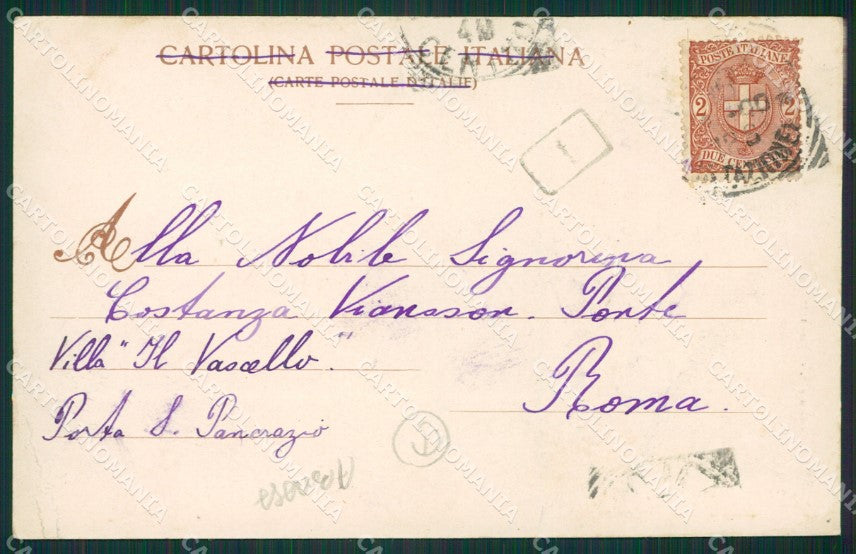 CARTOLINA POSTALE ITALIANA
(CARTE POSTALE D'ITALIE)
POSTE ITALIANE
2 2
Alla Nobile Signorina
Costanza Vianson. Ponte
Villa "Il Vascello."
Roma.
Porta S. Pancrazio
CARTOLINOMANIA